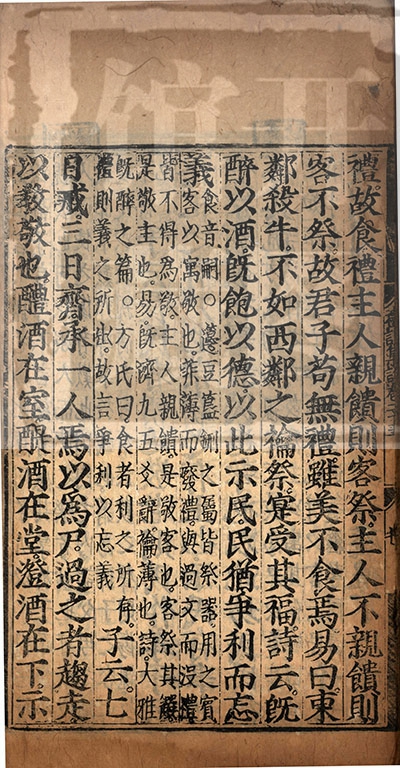 禮。故食禮主人親饋則客祭。主人不親饋則
客不祭。故君子苟無禮雖美不食焉。易曰。東
鄰殺牛。不如西鄰之禴祭。寔受其福。詩云。旣
醉以酒。旣飽以德。以此示民。民猶爭利而忘
義食音嗣。○籩豆簋鉶之屬皆祭器用之賓
客以寓敬也。菲薄而廢禮。與過文而沒禮
皆不得為敬。主人親饋。是敬客也。客祭其饌
是敬主也。易旣濟九五爻辭。禴薄也。詩大雅
旣醉之篇。○方氏曰。食者利之所存。
禮則義之所出。故言爭利以忘義子云。七
日戒。三日齊。承一人焉。以為尸。過之者趨走。
以敎敬也。醴酒在室。醍酒在堂。澄酒在下。示